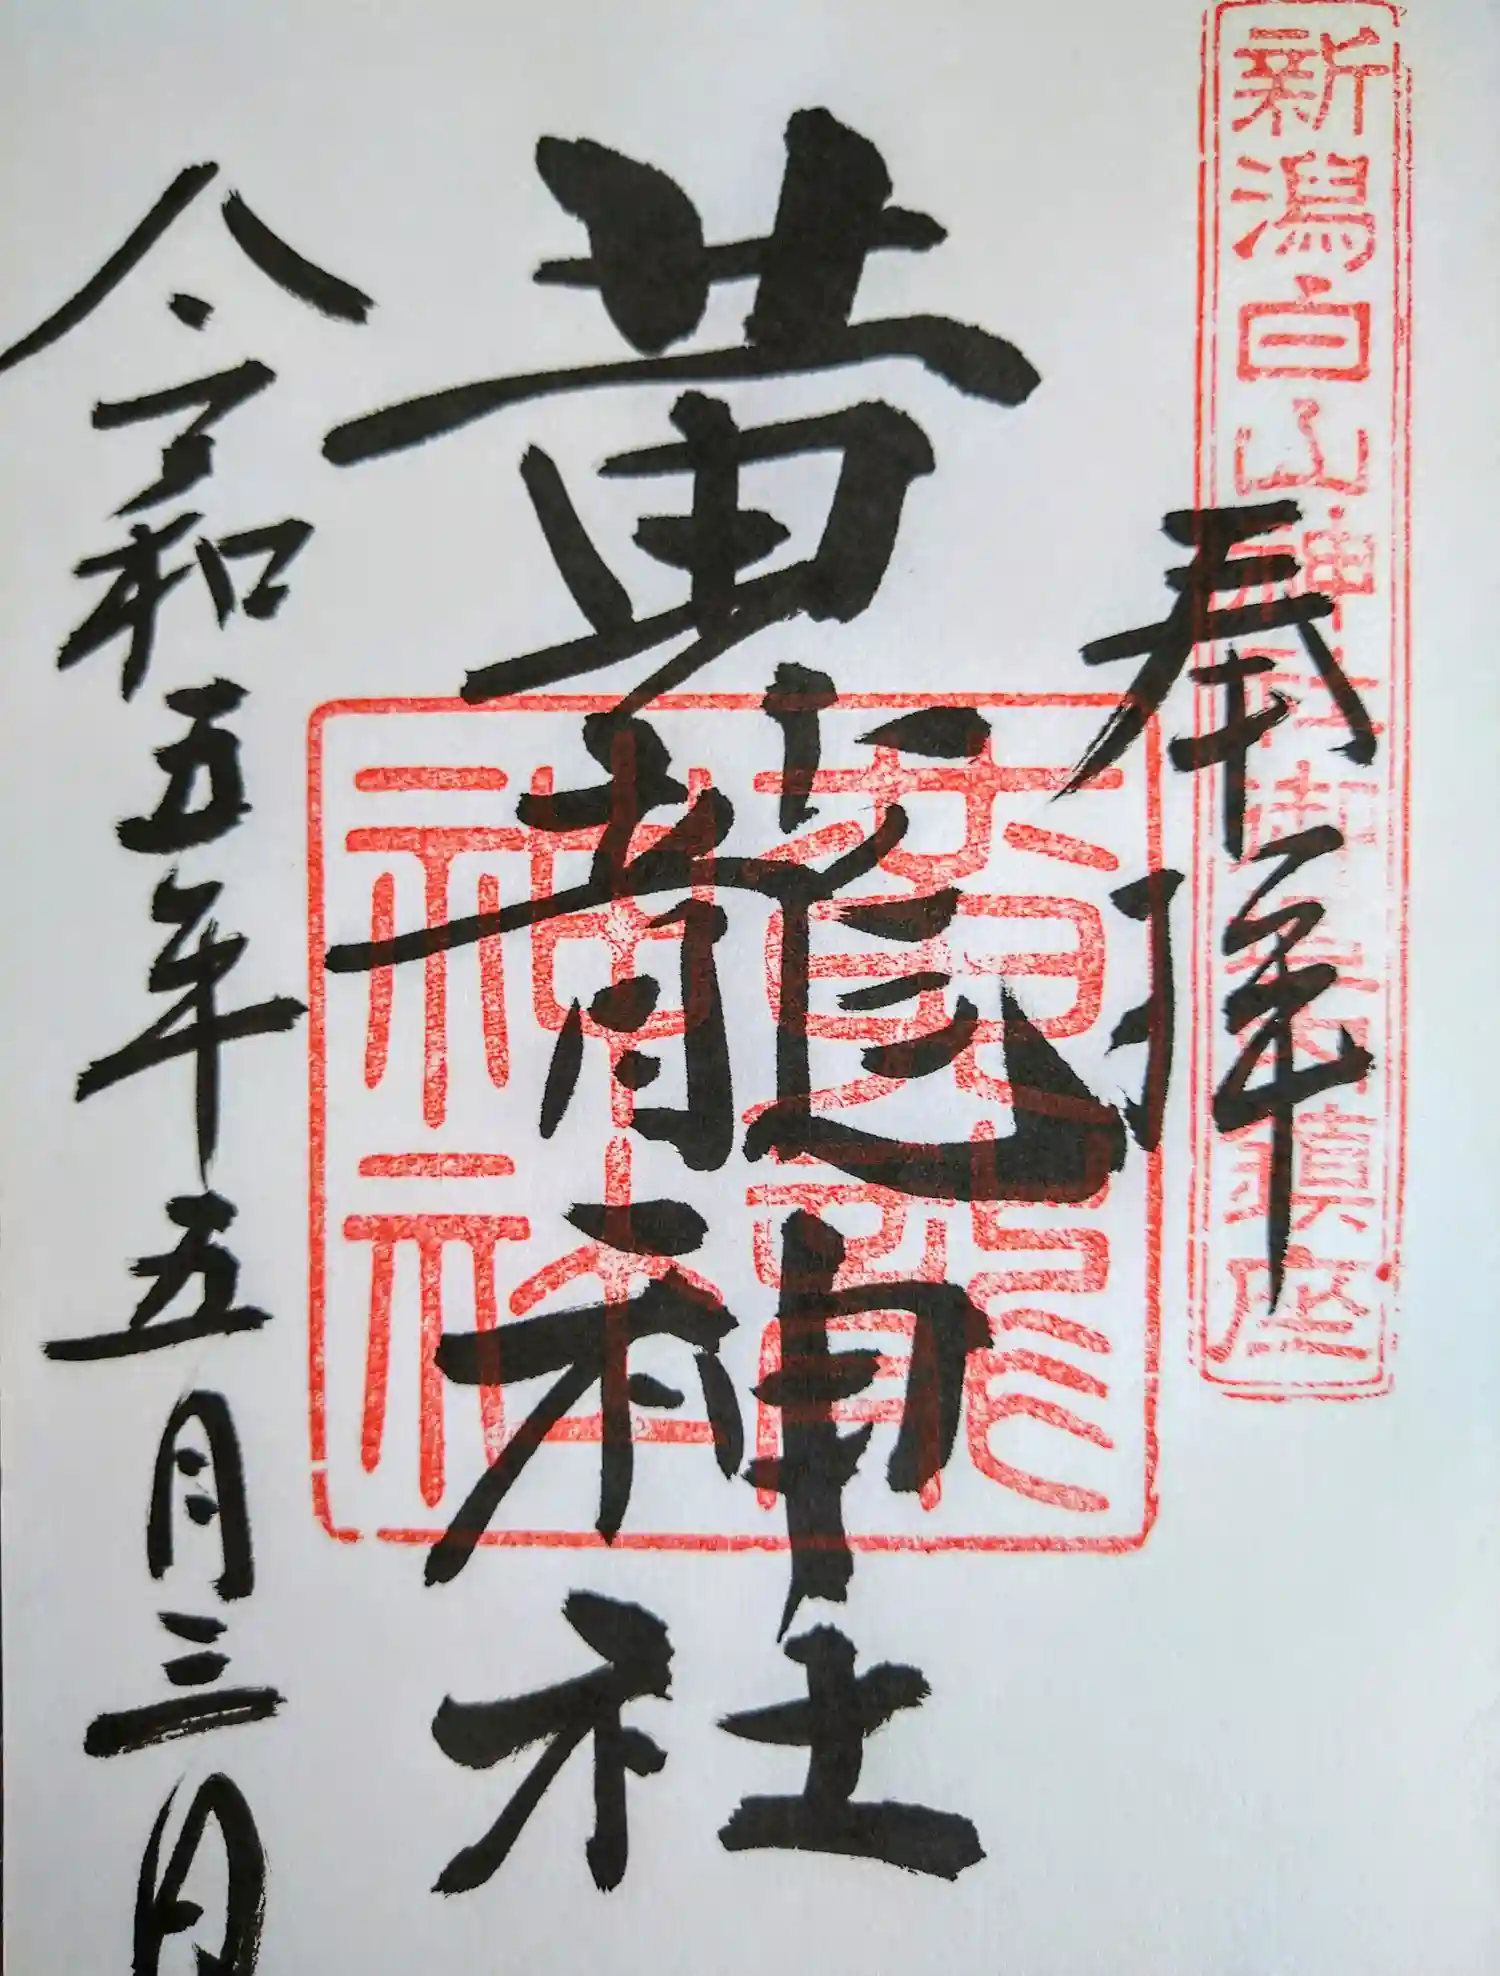 新潟白山神社御本宮鎮座
奉拝
黄龍神社
黄龍神社
令和五年五月三日